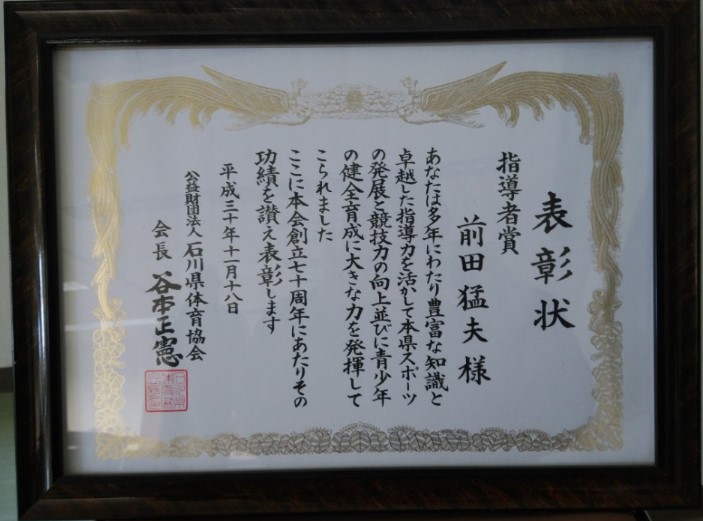 表彰状
指導者賞
前田猛夫様
あなたは多年にわたり豊富な知識と
卓越した指導力を活かして本県スポーツ
の発展と競技力の向上並びに青少年
の健全育成に大きな力を発揮して
こられました
ここに本会創立七十周年にあたりその
功績を讃え表彰します
平成三十年十一月十八日
公益財団法人石川県体育協会
会長 谷本正憲